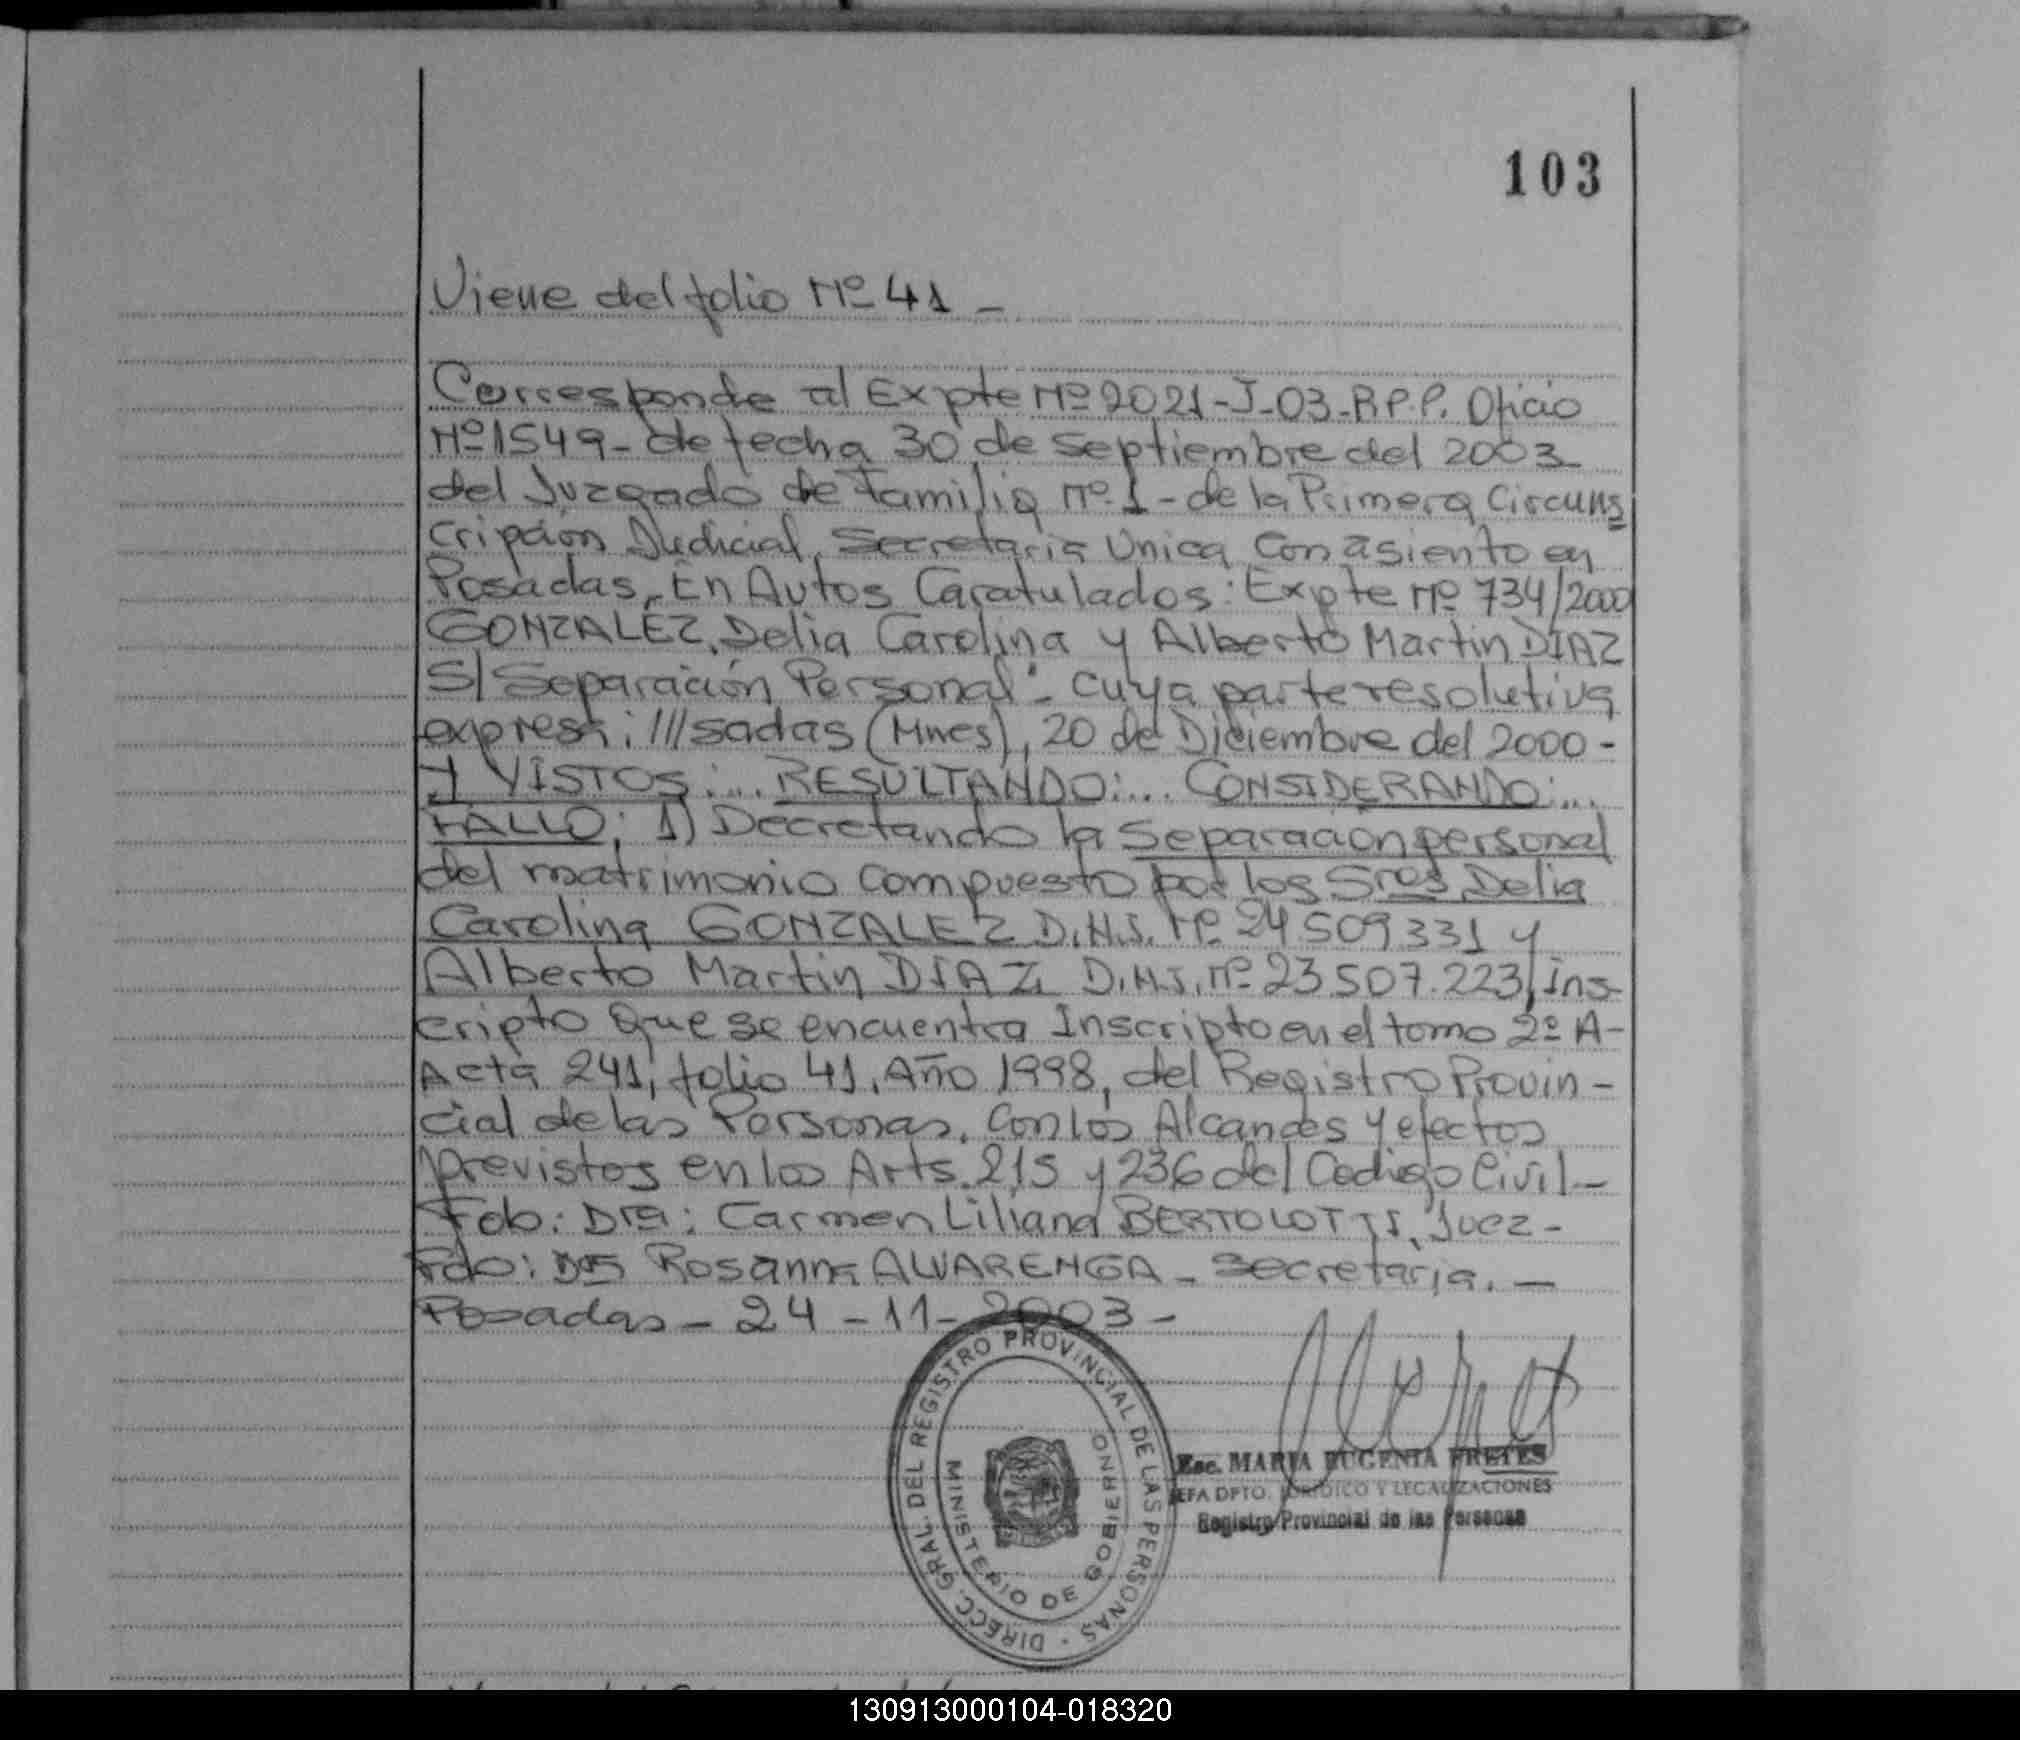 103
Viene del folio Nº 41 -
Corresponde al Expte Nº 2021-J-03-R.P.P. Oficio
Nº 1549- de fecha 30 de septiembre del 2003
del Juzgado de Familia Nº 1 - de la Primera Circuns
cripción Judicial, Secretaria Unica, Con asiento en
Posadas, En Autos Caratulados: Expte Nº 734/2000
GONZALEZ, Delia Carolina y Alberto Martin DIAZ
S/ Separación Personal". cuya parte resolutiva
expresa: ///sadas (Mnes), 20 de Diciembre del 2000-
Y VISTOS:... RESULTANDO:... CONSIDERANDO:...
FALLO: 1) Decretando la Separacion personal
del matrimonio compuesto por los Sres Delia
Carolina GONZALEZ D.N.I. Nº 24.509.331 y
Alberto Martin DIAZ D.N.I. Nº 23.507.223, ins-
cripto que se encuentra Inscripto en el tomo 2º A-
Acta 241, folio 41, Año 1998, del Registro Provin-
cial de las Personas, con los Alcances y efectos
previstos en los Arts. 215 y 236 del Codigo Civil-
Fdo: Dra: Carmen Liliana BERTOLOTTI, Juez-
Fdo: Dra Rosanna ALVARENGA - Secretaria. -
Posadas - 24 - 11 - 2003 -
DIRECC. GRAL. DEL REGISTRO PROVINCIAL DE LAS PERSONAS
MINISTERIO DE GOBIERNO
Esc. MARIA EUGENIA FRETES
JEFA DPTO. JURIDICO Y LEGALIZACIONES
Registro Provincial de las Personas
130913000104-018320